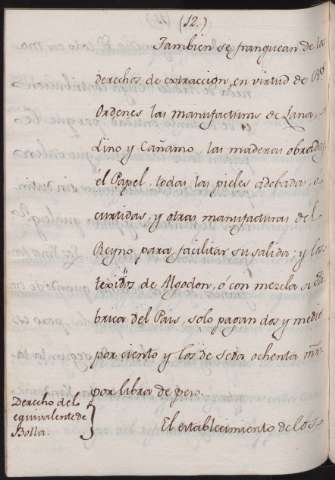 (12.)
Tambien se franquean de los
derechos de extraccion, en virtud de
Ordenes las manufacturas de Lana,
Lino y Cañamo, las maderas obradas
el Papel, todas las pieles adobadas, o
curtidas, y otras manufacturas del
Reyno, para facilitar su salida; y los
texidos de Algodon, ó con mezcla si
brica del Pais, solo pagan dos y medio
por ciento y los de Seda ochenta mrs.
por libra de peso.
Derecho de lo
equivalente de
Bolla.
El establecimiento de los